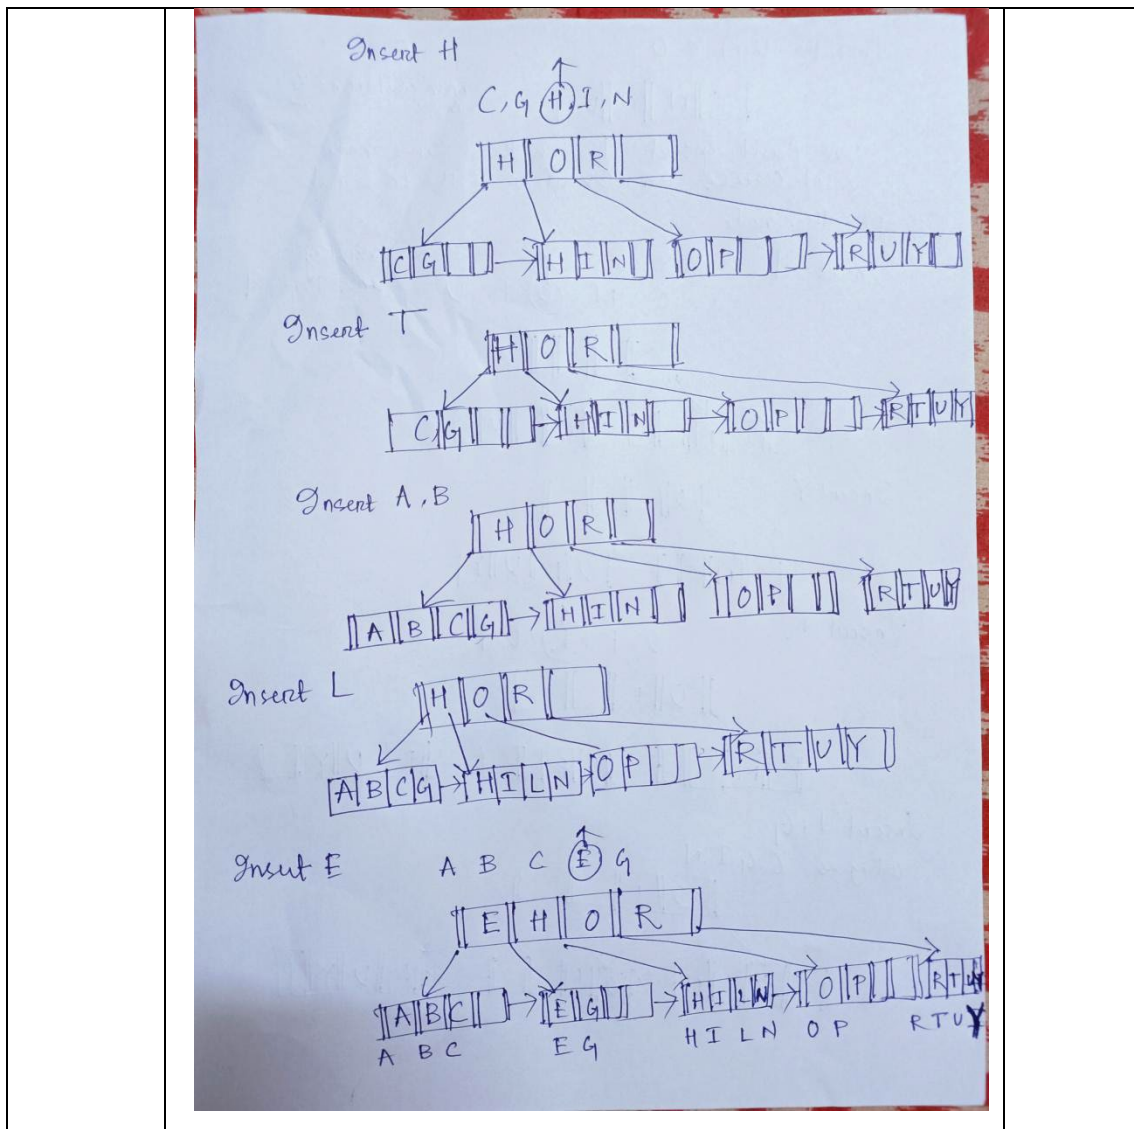 Insert H
C, G H, I, N
H O R
C G H I N O P R U Y
Insert T
H O R
C, G H I N O P R T U Y
Insert A, B
H O R
A B C G H I N O P R T U Y
Insert L
H O R
A B C G H I L N O P R T U Y
Insert E A B C E G
E H O R
A B C E G H I L N O P R T U Y
A B C E G H I L N O P R T U Y